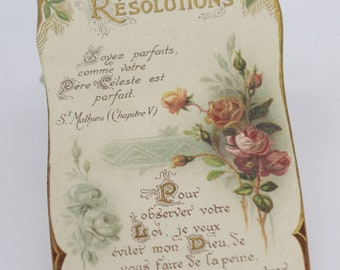 RÉSOLUTIONS
Soyez parfaits,
comme votre
Père Céleste est
parfait.
St Mathieu (Chapitre V)
Pour
observer votre
Loi, je veux
éviter mon Dieu, de
vous faire de la peine.